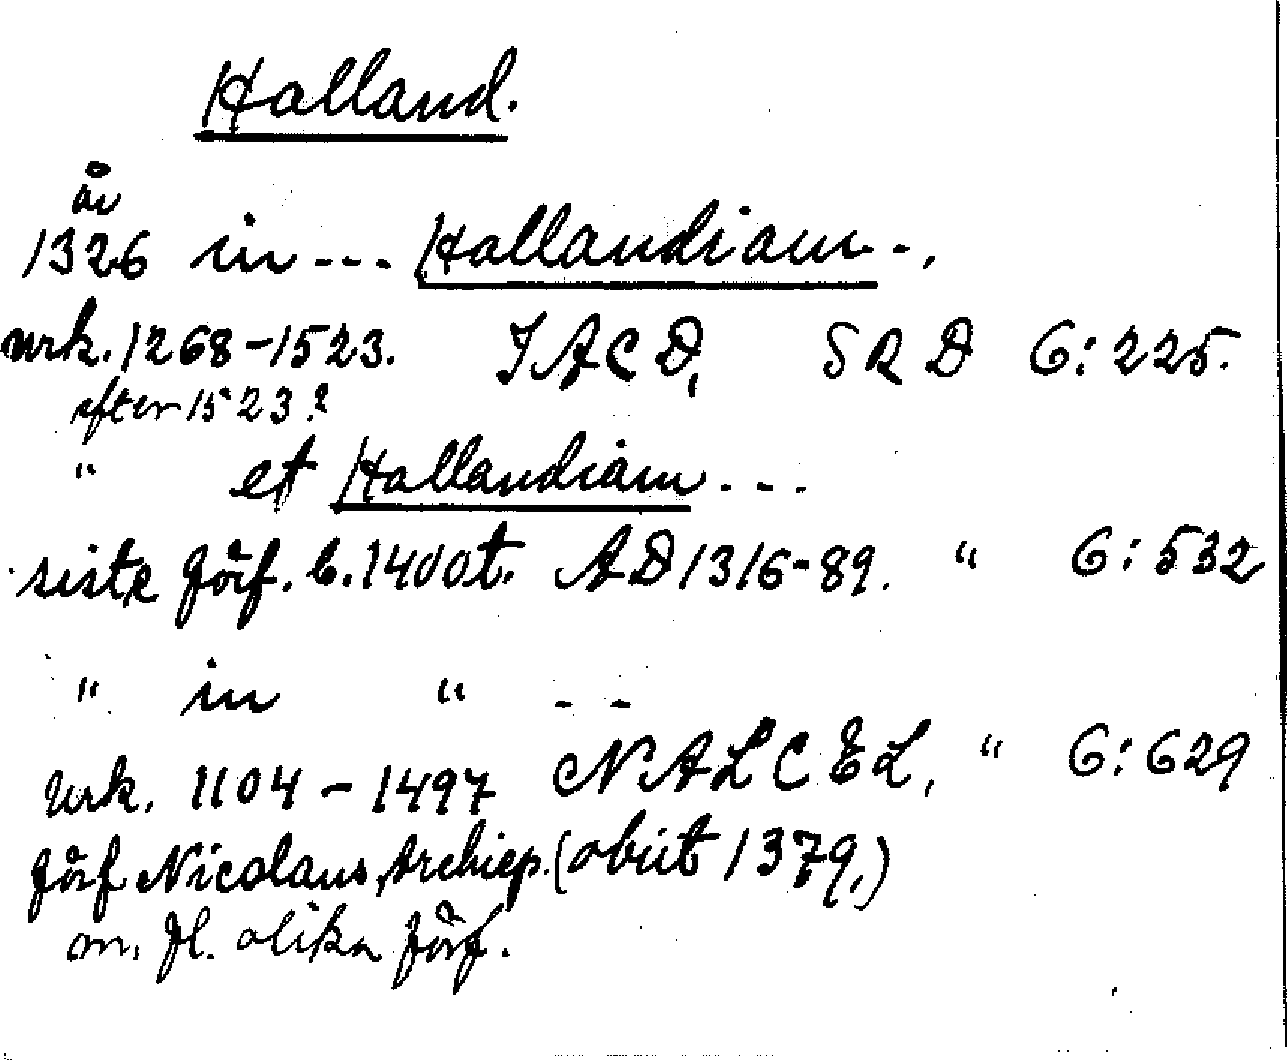 Halland.
år
1326 in --- Hallandiam -.
urk. 1268-1523. IACD, SRD 6:225.
efter 1523?
" et Hallandiam ---
siste förf. b. 1400t. AD 1316-89. " 6:532
" in " --
urk. 1104-1497 NALCEL, " 6:629
förf Nicolaus, Archiep. (obiit 1379,)
m. fl. olika förf.